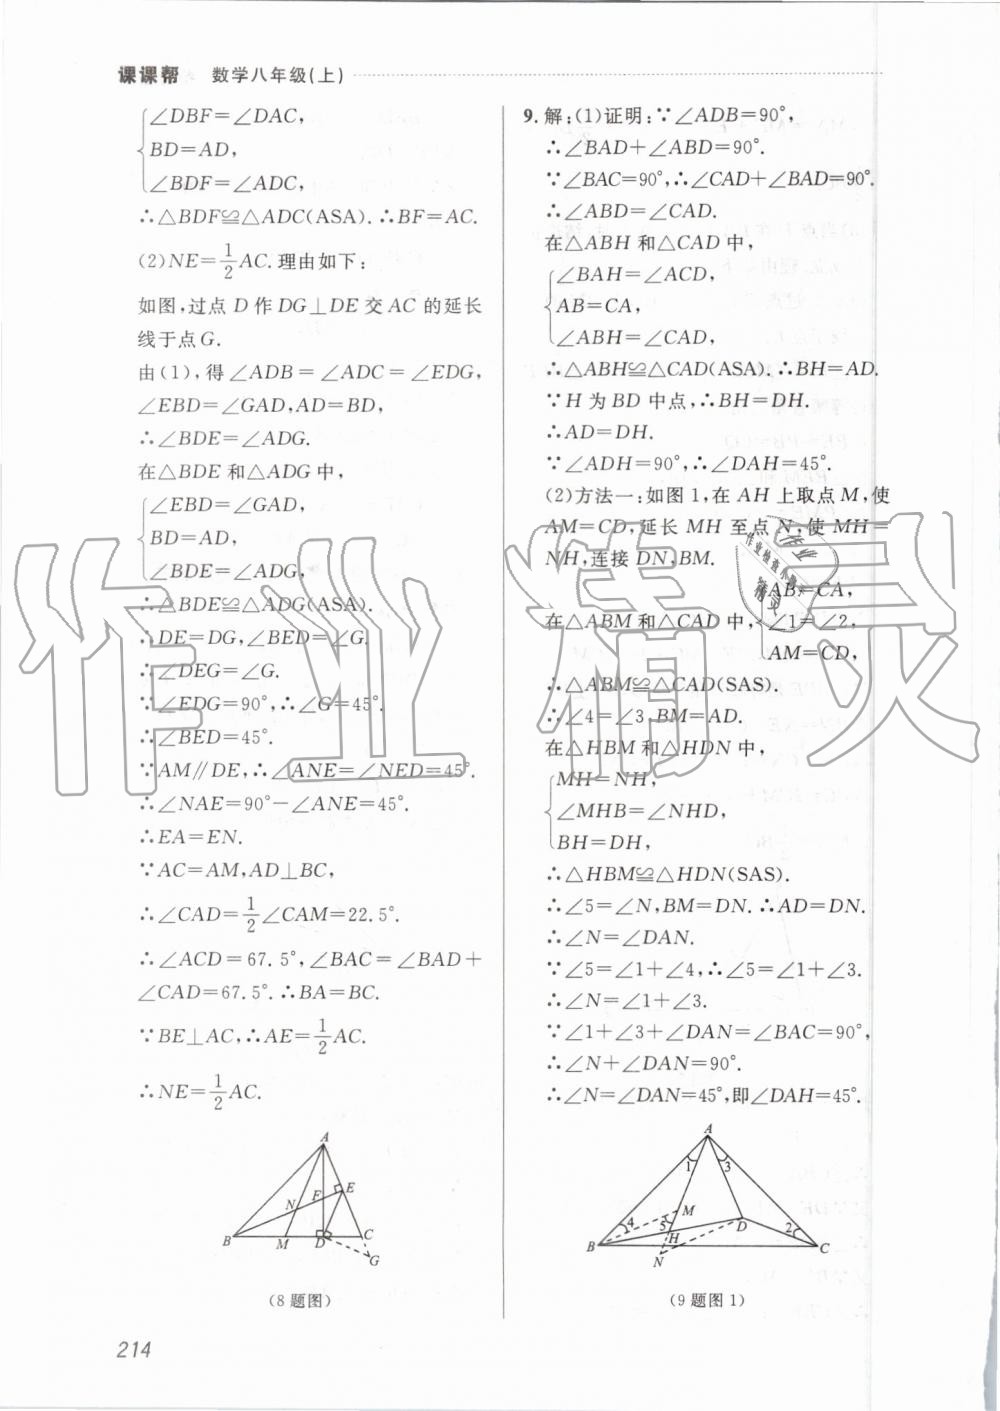 课课帮 数学八年级(上)
∠DBF=∠DAC,
BD=AD,
∠BDF=∠ADC,
∴△BDF≌△ADC(ASA).∴BF=AC.
(2)NE=1/2AC.理由如下:
如图,过点 D 作 DG⊥DE 交 AC 的延长
线于点 G.
由(1),得∠ADB=∠ADC=∠EDG,
∠EBD=∠GAD,AD=BD,
∴∠BDE=∠ADG.
在△BDE 和△ADG 中,
∠EBD=∠GAD,
BD=AD,
∠BDE=∠ADG,
∴△BDE≌△ADG(ASA).
∴DE=DG,∠BED=∠G.
∴∠DEG=∠G.
∵∠EDG=90°,∴∠G=45°.
∴∠BED=45°.
∵AM∥DE,∴∠ANE=∠NED=45°.
∴∠NAE=90°-∠ANE=45°.
∴EA=EN.
∵AC=AM,AD⊥BC,
∴∠CAD=1/2∠CAM=22.5°.
∴∠ACD=67.5°,∠BAC=∠BAD+
∠CAD=67.5°.∴BA=BC.
∵BE⊥AC,∴AE=1/2AC.
∴NE=1/2AC.
A
E
F
N
B
M
D
C
G
(8题图)
9.解:(1)证明:∵∠ADB=90°,
∴∠BAD+∠ABD=90°.
∵∠BAC=90°,∴∠CAD+∠BAD=90°.
∴∠ABD=∠CAD.
在△ABH 和△CAD 中,
∠BAH=∠ACD,
AB=CA,
∠ABH=∠CAD,
∴△ABH≌△CAD(ASA).∴BH=AD.
∵H 为 BD 中点,∴BH=DH.
∴AD=DH.
∵∠ADH=90°,∴∠DAH=45°.
(2)方法一:如图 1,在 AH 上取点 M,使
AM=CD,延长 MH 至点 N,使 MH=
NH,连接 DN,BM.
AB=CA,
在△ABM 和△CAD 中,∠1=∠2,
AM=CD,
∴△ABM≌△CAD(SAS).
∴∠4=∠3,BM=AD.
在△HBM 和△HDN 中,
MH=NH,
∠MHB=∠NHD,
BH=DH,
∴△HBM≌△HDN(SAS).
∴∠5=∠N,BM=DN.∴AD=DN.
∴∠N=∠DAN.
∵∠5=∠1+∠4,∴∠5=∠1+∠3.
∴∠N=∠1+∠3.
∵∠1+∠3+∠DAN=∠BAC=90°,
∴∠N+∠DAN=90°.
∴∠N=∠DAN=45°,即∠DAH=45°.
A
1
3
4
M
5
D
2
B
H
N
C
(9题图 1)
214
作业精灵